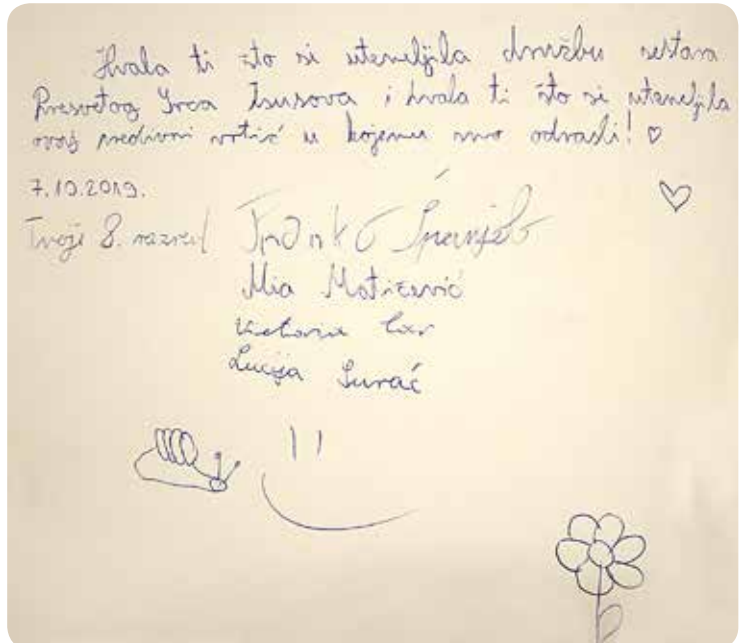 Hvala ti što si utemeljila družbu sestara
Presvetog Srca Isusova i hvala ti što si utemeljila
ovaj predivni vrtić u kojemu smo odrasli!
7.10.2019.
Tvoji 8. razred Franko Španjol
Mia Matičević
Viktoria Car
Lucija Surać